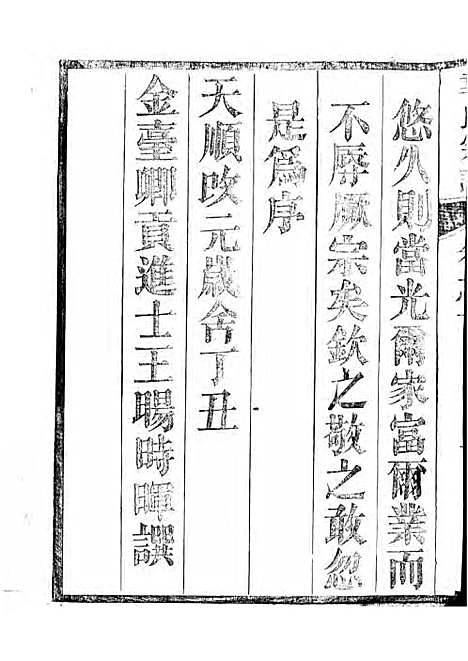 悠久則當光爾家富爾業而
不辱厥宗矣欽之敬之敢忽
是爲序
天順改元歲舍丁丑
金臺鄉貢進士王暘時暉譔